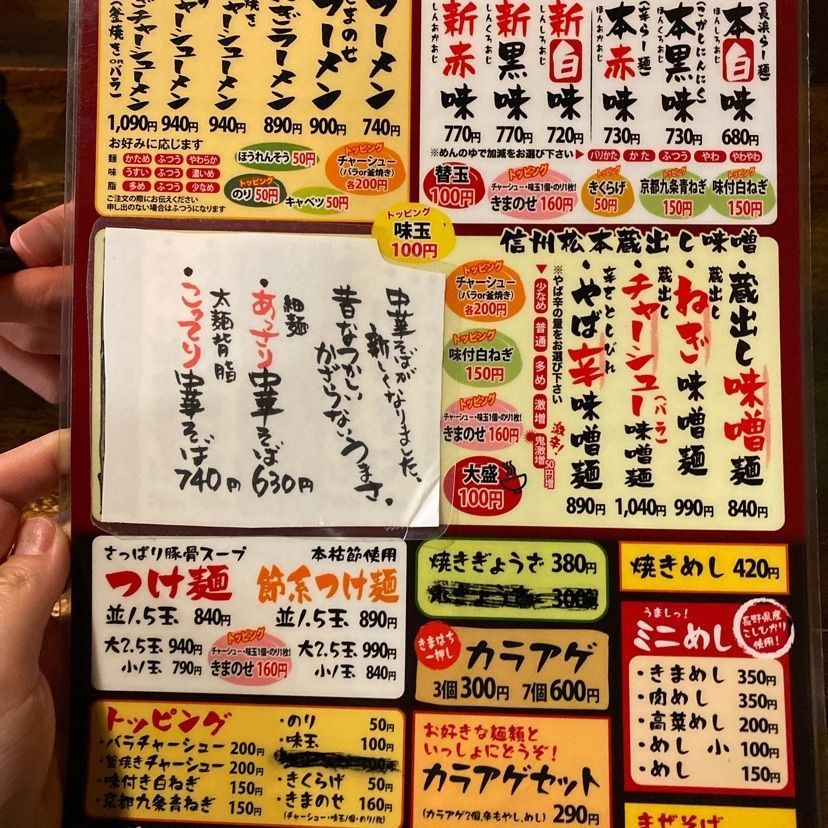 ラーメン
740円
きまのせ
ラーメン
900円
ねぎラーメン
890円
チャーシューメン
940円
チャーシューメン
940円
チャーシューメン
(釜焼きorバラ)
1,090円
お好みに応じます
麺 かため ふつう やわらか
味 うすい ふつう 濃いめ
脂 多め ふつう 少なめ
ご注文の際にお伝えください
申し出のない場合はふつうになります
ほうれんそう 50円
トッピング
のり 50円
キャベツ 50円
トッピング
チャーシュー
(バラor釜焼き)
各200円
(長浜らー麺)
本白味
ほんしろあじ
680円
(こがしにんにく)
本黒味
ほんくろあじ
730円
(辛らー麺)
本赤味
ほんあかあじ
730円
新白味
しんしろあじ
720円
新黒味
しんくろあじ
770円
新赤味
しんあかあじ
770円
※めんのゆで加減をお選び下さい▶
バリかた かた ふつう やわ やわやわ
替玉
100円
トッピング
チャーシュー・味玉1個・のり1枚!
きまのせ 160円
トッピング
きくらげ
50円
トッピング
京都九条青ねぎ
150円
トッピング
味付白ねぎ
150円
トッピング
味玉
100円
中華そばが
新しくなりました。
昔なつかしい
かざらないうまさ。
細麺
・あっさり中華そば 630円
太麺背脂
・こってり中華そば 740円
信州松本蔵出し味噌
・蔵出し味噌麺
840円
蔵出し
・ねぎ味噌麺
990円
蔵出し
・チャーシュー(バラ)味噌麺
1,040円
辛さとしびれ
・やば辛味噌麺
890円
※やば辛の量をお選び下さい
▼少なめ 普通 多め 激増 鬼激増
激辛!
50円増
トッピング
チャーシュー
(バラor釜焼き)
各200円
トッピング
味付白ねぎ
150円
トッピング
チャーシュー・味玉1個・のり1枚!
きまのせ 160円
大盛
100円
さっぱり豚骨スープ
つけ麺
並/1.5玉 840円
大/2.5玉 940円
小/1玉 790円
本枯節使用
節系つけ麺
並/1.5玉 890円
大/2.5玉 990円
小/1玉 840円
トッピング
チャーシュー・味玉1個・のり1枚!
きまのせ 160円
焼きぎょうざ 380円
300円
焼きめし 420円
きまはち
一押し
カラアゲ
3個 300円 7個 600円
うましっ!
ミニめし
長野県産
こしひかり
使用!
・きまめし 350円
・肉めし 350円
・高菜めし 200円
・めし 小 100円
・めし 150円
トッピング
・バラチャーシュー 200円
・釜焼きチャーシュー 200円
・味付き白ねぎ 150円
・京都九条青ねぎ 150円
・のり 50円
・味玉 100円
・きくらげ 50円
・きまのせ 160円
(チャーシュー・味玉1個・のり1枚)
お好きな麺類と
いっしょにどうぞ!
カラアゲセット
(カラアゲ2個、辛もやし、めし) 290円
まぜそば